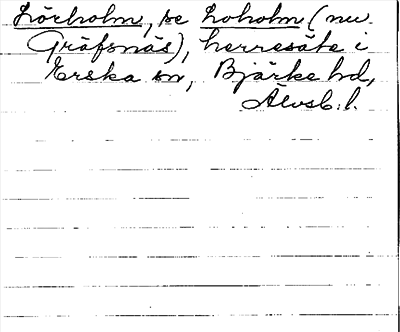 Lörholm, se Loholm (nu.
Gräfsnäs), herresäte i
Erska sn, Bjärke hd,
Älvsb. l.